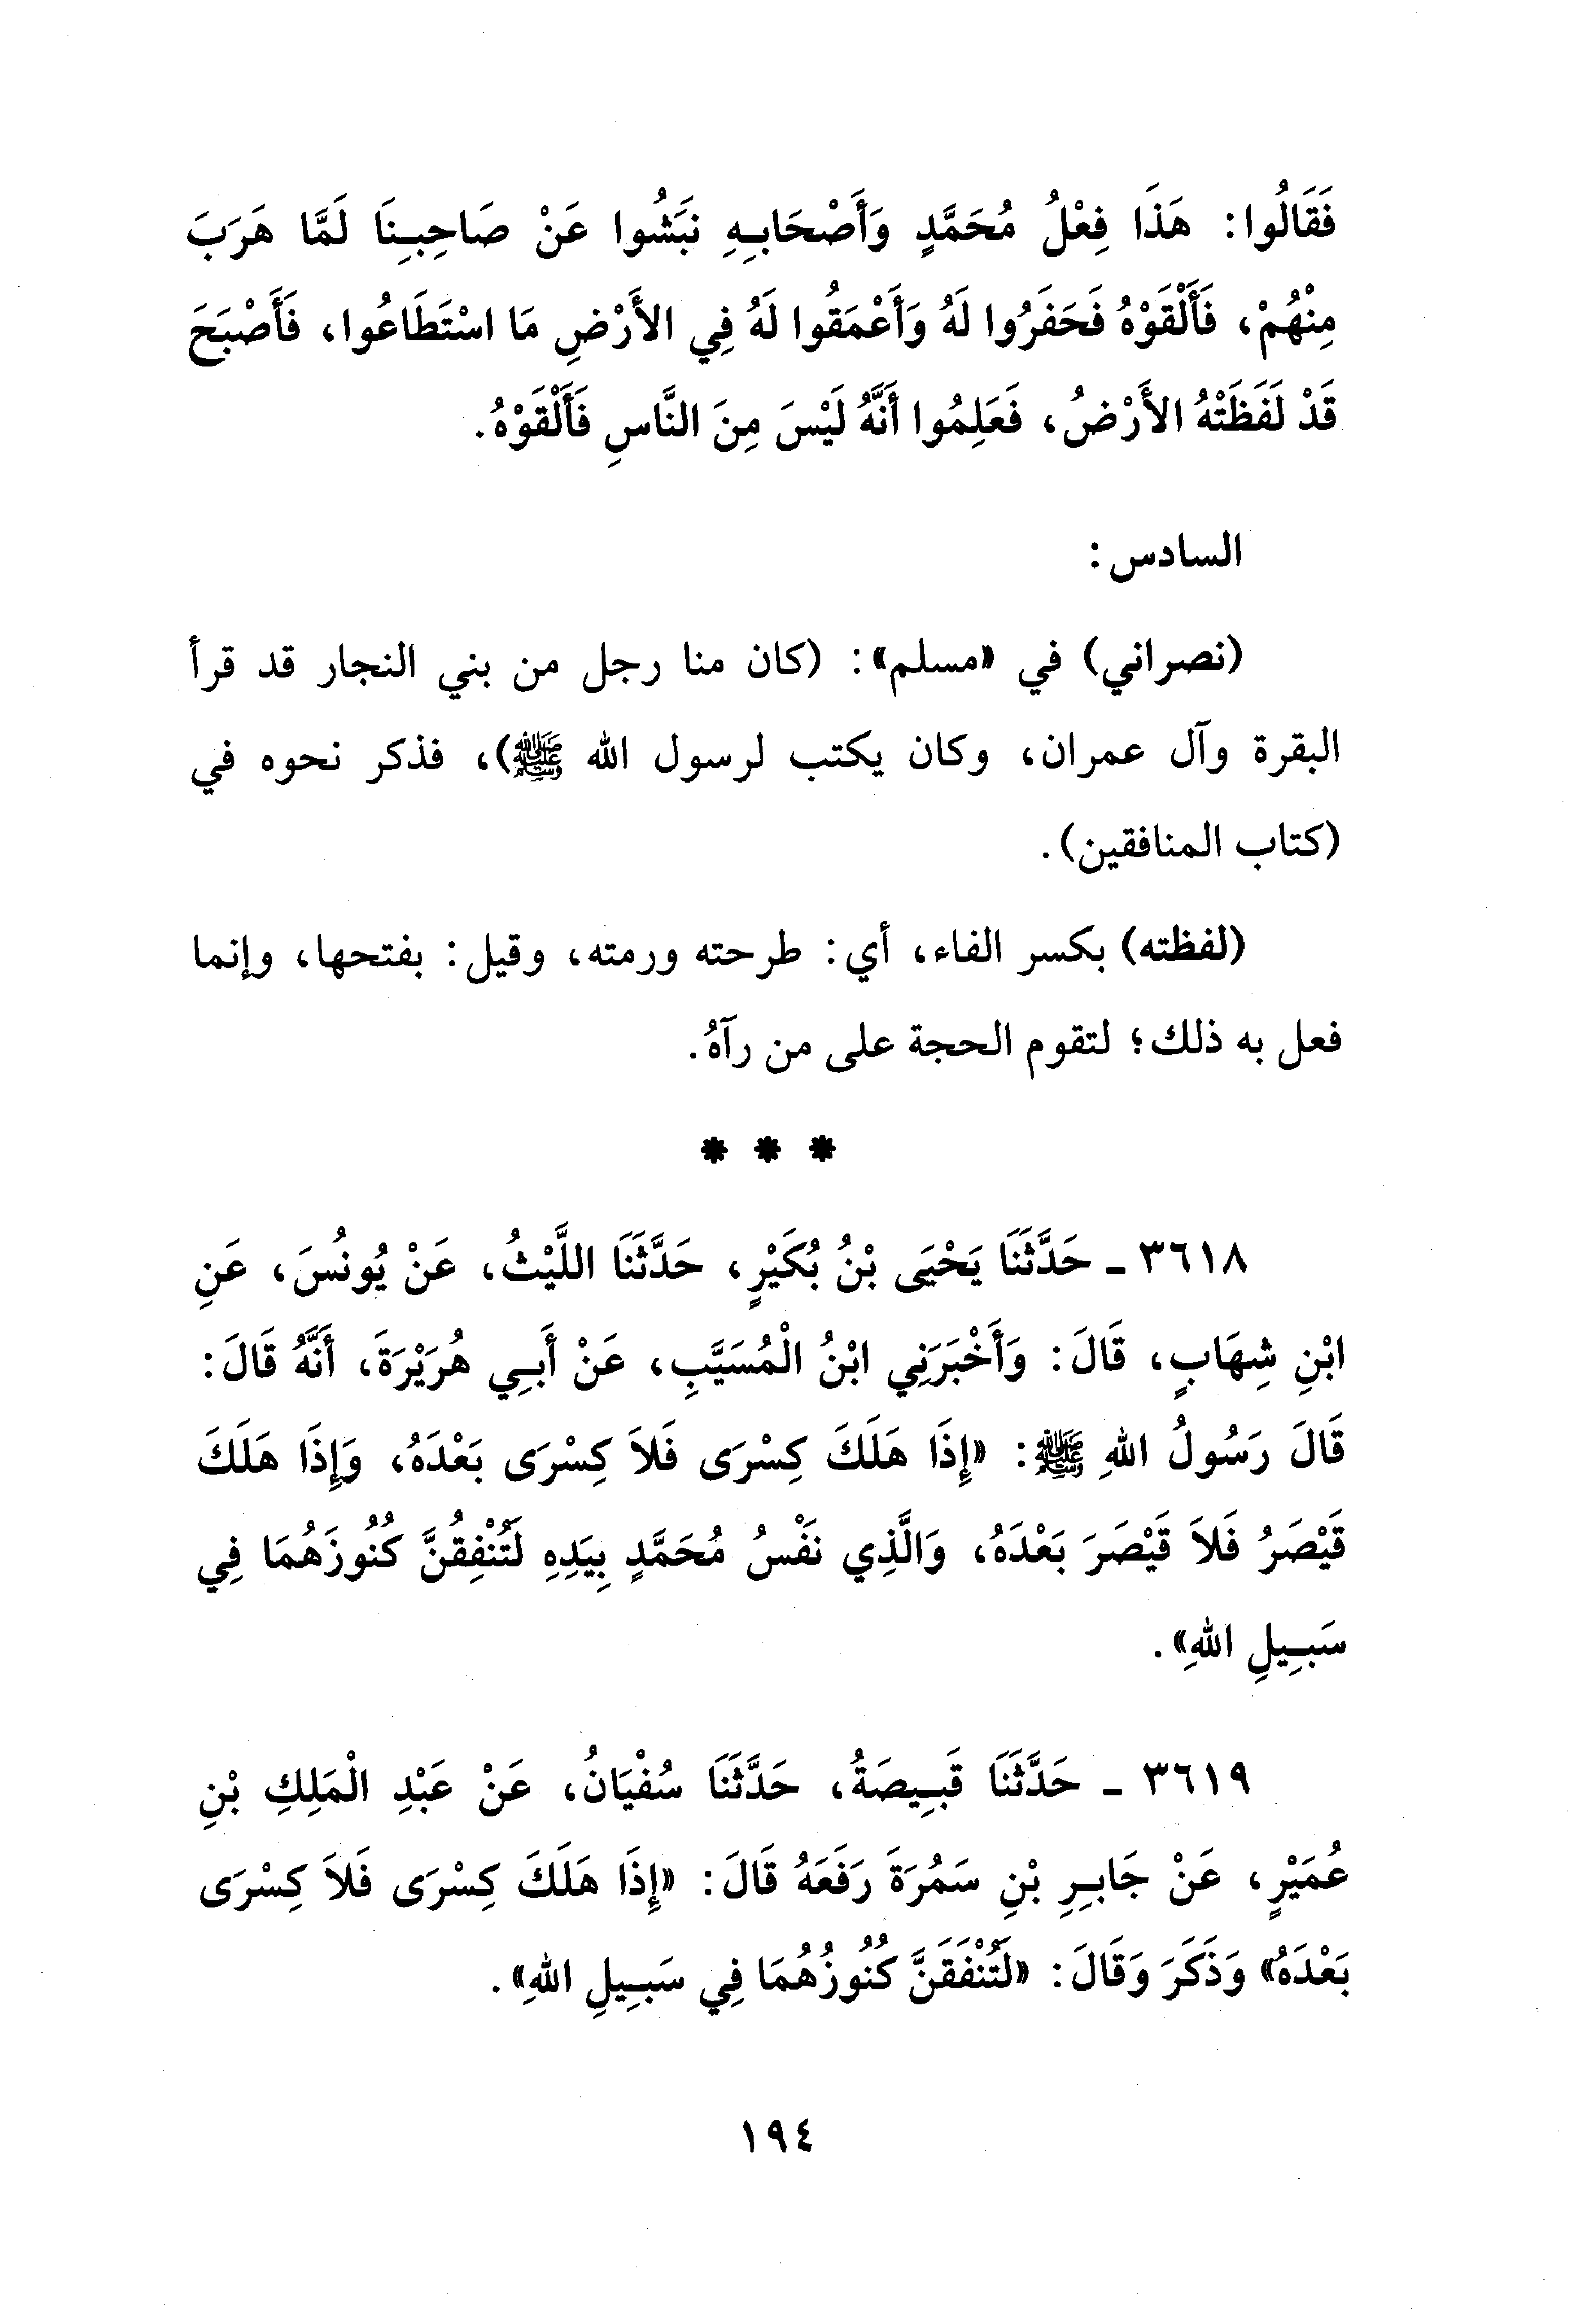 فَقَالُوا: هَذَا فِعْلُ مُحَمَّدٍ وَأَصْحَابِهِ نَبَشُوا عَنْ صَاحِبِنَا لَمَّا هَرَبَ
مِنْهُمْ، فَأَلْقَوْهُ فَحَفَرُوا لَهُ وَأَعْمَقُوا لَهُ فِي الأَرْضِ مَا اسْتَطَاعُوا، فَأَصْبَحَ
قَدْ لَفَظَتْهُ الأَرْضُ، فَعَلِمُوا أَنَّهُ لَيْسَ مِنَ النَّاسِ فَأَلْقَوْهُ.
السادس:
(نصراني) في «مسلم»: (كان منا رجل من بني النجار قد قرأ
البقرة وآل عمران، وكان يكتب لرسول الله ﷺ)، فذكر نحوه في
(كتاب المنافقين).
(لفظته) بكسر الفاء، أي: طرحته ورمته، وقيل: بفتحها، وإنما
فعل به ذلك؛ لتقوم الحجة على من رآهُ.
* * *
٣٦١٨ - حَدَّثَنَا يَحْيَى بْنُ بُكَيْرٍ، حَدَّثَنَا اللَّيْثُ، عَنْ يُونُسَ، عَنِ
ابْنِ شِهَابٍ، قَالَ: وَأَخْبَرَنِي ابْنُ الْمُسَيَّبِ، عَنْ أَبِي هُرَيْرَةَ، أَنَّهُ قَالَ:
قَالَ رَسُولُ اللهِ ﷺ: «إِذَا هَلَكَ كِسْرَى فَلاَ كِسْرَى بَعْدَهُ، وَإِذَا هَلَكَ
قَيْصَرُ فَلاَ قَيْصَرَ بَعْدَهُ، وَالَّذِي نَفْسُ مُحَمَّدٍ بِيَدِهِ لَتُنْفِقُنَّ كُنُوزَهُمَا فِي
سَبِيلِ اللهِ».
٣٦١٩ - حَدَّثَنَا قَبِيصَةُ، حَدَّثَنَا سُفْيَانُ، عَنْ عَبْدِ الْمَلِكِ بْنِ
عُمَيْرٍ، عَنْ جَابِرِ بْنِ سَمُرَةَ رَفَعَهُ قَالَ: «إِذَا هَلَكَ كِسْرَى فَلاَ كِسْرَى
بَعْدَهُ» وَذَكَرَ وَقَالَ: «لَتُنْفَقَنَّ كُنُوزُهُمَا فِي سَبِيلِ اللهِ».
١٩٤